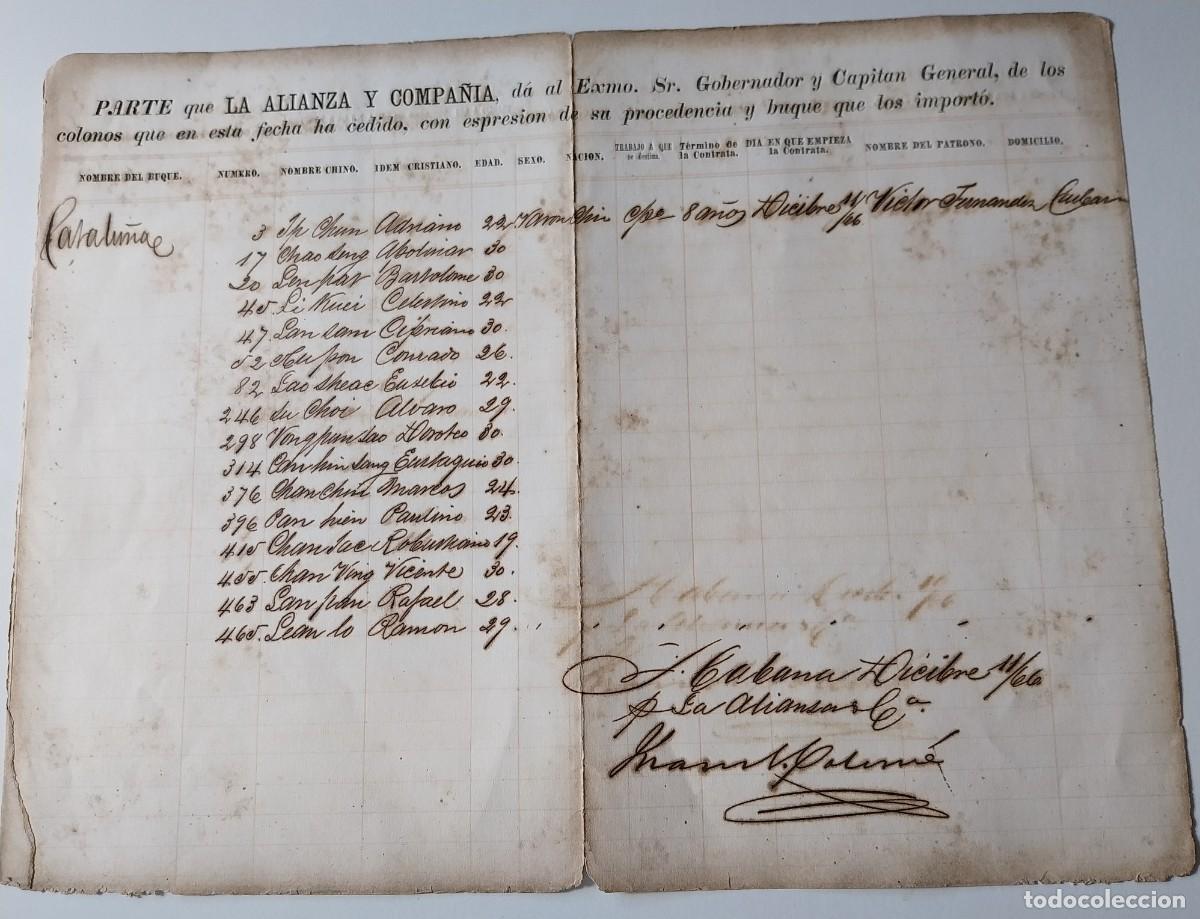 PARTE que LA ALIANZA Y COMPAÑIA, dá al Exmo. Sr. Gobernador y Capitan General, de los
colonos que en esta fecha ha cedido, con espresion de su procedencia y buque que los importó.
NOMBRE DEL BUQUE. NUMERO. NOMBRE CHINO. IDEM CRISTIANO. EDAD. SEXO. NACION. TRABAJO A QUE se destina. Término de la Contrata. DIA EN QUE EMPIEZA la Contrata. NOMBRE DEL PATRONO. DOMICILIO.
Cataluña 3 Chun Adriano 22 Varon Chin 8 años Dicibre 11/66 Victor Fernandez
17 Chao seng Abolinar 30
20 Len pat Bartolome 30
45 Li Kuei Celestino 22
47 Lan sam Cipriano 30.
52 pon Conrado 26.
82 Lao sheac Eusebio 22.
246 Su Choi Alvaro 29.
298 Vong pan sao Doroteo 30.
314 Can hin sang Eustaquio 30.
376 Chan Chin Marcos 24.
396 Pan hien Paulino 23.
415 Chan Sac Robustiano 19.
455 Chan Ving Vicente 30.
463 Lan pan Rafael 28.
465 Lean lo Ramon 29.
Habana Dicibre 11/66
p La Alianza y Ca.
todocoleccion